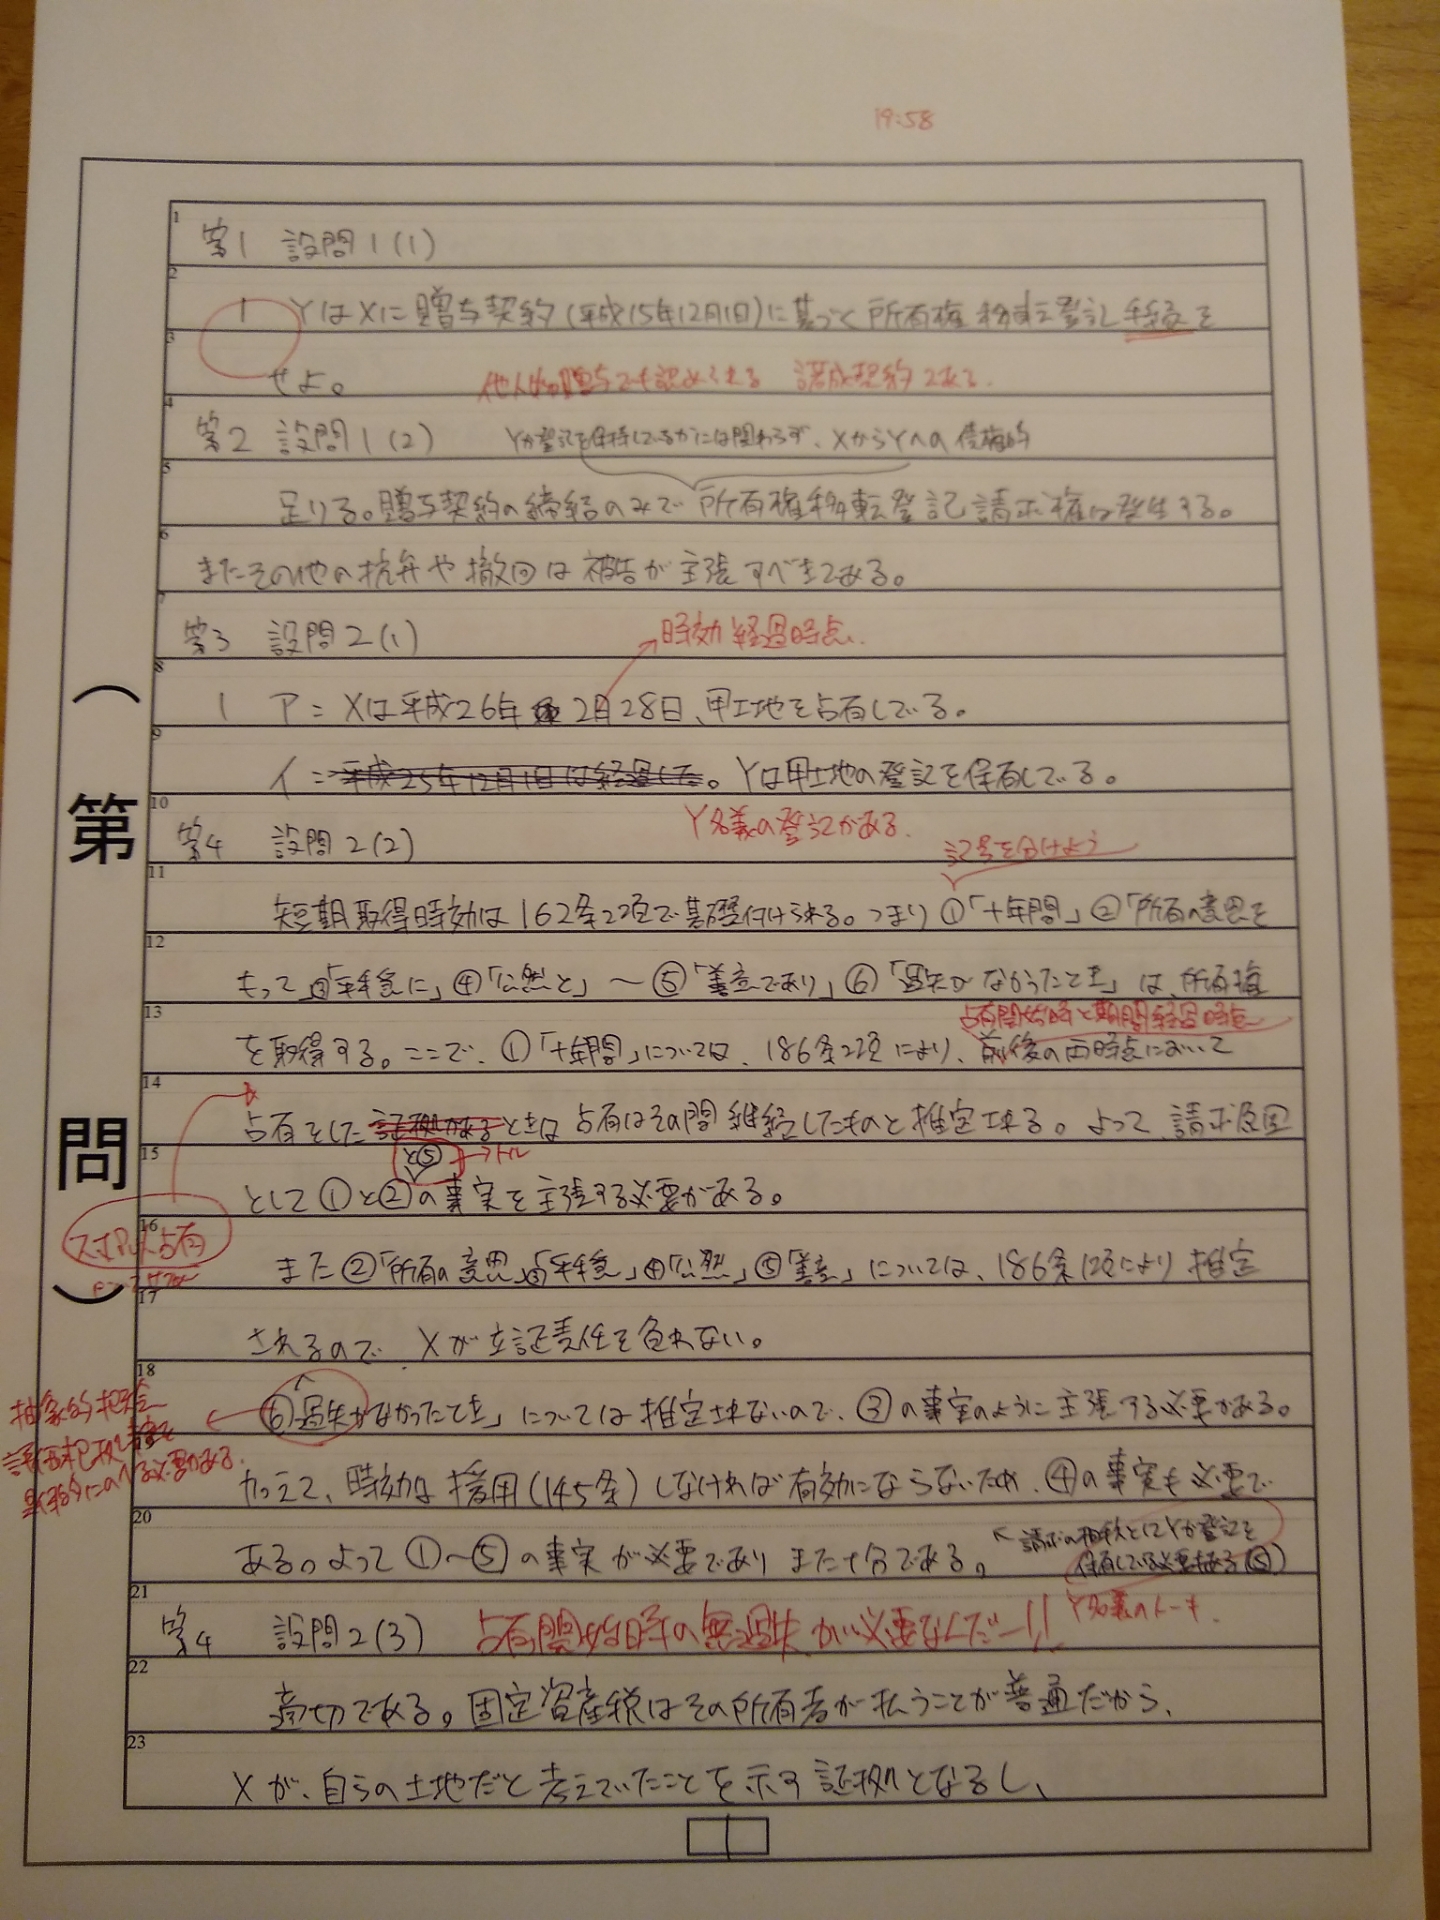 19:58
1 第1 設問1(1)
2 1 YはXに贈与契約(平成15年12月1日)に基づく所有権移転登記手続を
3 せよ。 他人物贈与でも認められる 諾成契約である。
4 第2 設問1(2) Yが登記を保持しているかには関わらず、XからYへの債権的
5 足りる。贈与契約の締結のみで所有権移転登記請求権は発生する。
6 またその他の抗弁や撤回は被告が主張すべきである。
7 第3 設問2(1) 時効経過時点
8 1 ア= Xは平成26年2月28日、甲土地を占有している。
9 イ= 平成25年12月1日は経過した。Yは甲土地の登記を保有している。
Y名義の登記がある。
10 第4 設問2(2) 記号を分けよう
11 短期取得時効は162条2項で基礎付けられる。つまり①「十年間」②「所有の意思を
12 もって」③「平穏に」④「公然と」〜⑤「善意であり」⑥「過失がなかったとき」は、所有権
占有開始時と期間経過時点
13 を取得する。ここで、①「十年間」については、186条2項により、前後の両時点において
14 占有をした証拠があるときは占有はその間継続したものと推定される。よって、請求原因
と⑤ →トル
15 として①と②の事実を主張する必要がある。
スポット占有
16 また②「所有の意思」③「平穏」④「公然」⑤「善意」については、186条1項により推定
17 されるので、Xが立証責任を負わない。
18 ⑥「過失がなかったとき」については推定されないので、③の事実のように主張する必要がある。
抽象的概念
評価根拠事実を
具体的にのべる必要がある。
加えて、時効は援用(145条)しなければ有効にならないため、④の事実も必要で
20 ある。よって①〜⑤の事実が必要でありまた十分である。
請求の相手としてYが登記を
保有している必要もある(⑤)
Y名義のトーキ
21 第4 設問2(3) 占有開始時の無過失が必要なんだー!!
22 適切である。固定資産税はその所有者が払うことが普通だから、
23 Xが、自らの土地だと考えていたことを示す証拠となるし、
(第 問)
1